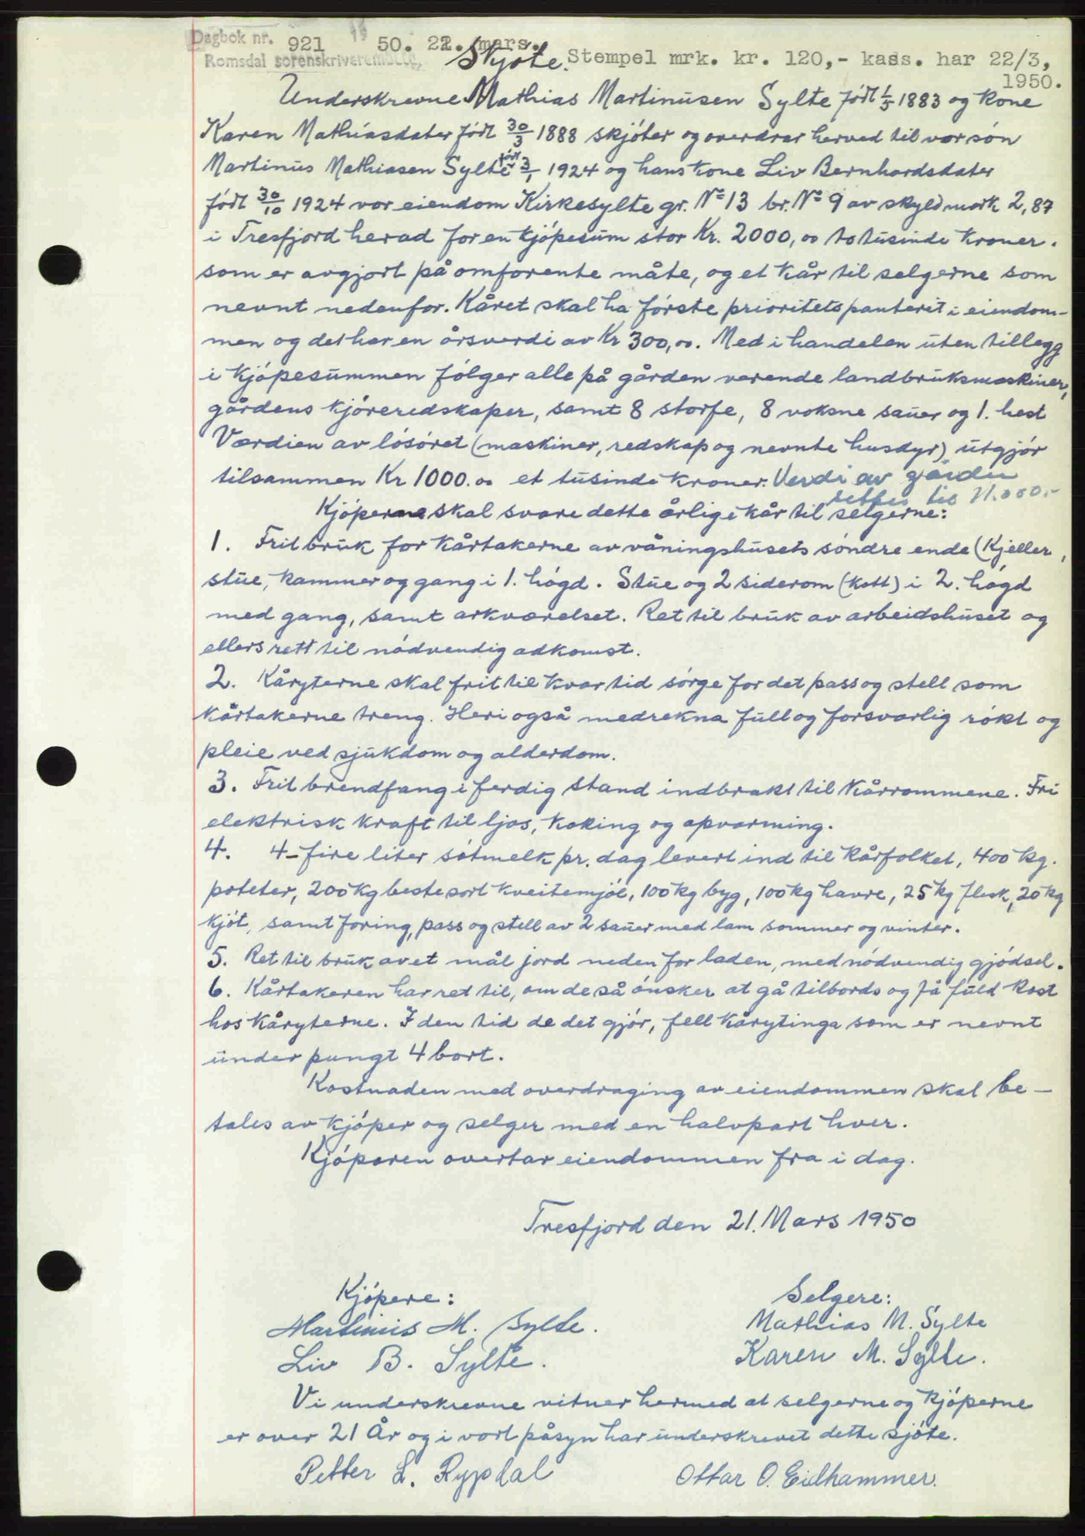 Dagbok nr. 921 19 50. 22. mars.
Romsdal sorenskriverembete, Skjøte. Stempel mrk. kr. 120,- kass. har 22/3,
1950.
Underskrevne Mathias Martinusen Sylte født 1/5 1883 og kone
Karen Mathiasdater født 30/3 1888 skjøter og overdrar herved til vor søn
Martinus Mathiasen Sylte født 3/1 1924 og hans kone Liv Bernhardsdater
født 30/10 1924 vor eiendom Kirkesylte gr. No 13 br. No 9 av skyldmark 2,87
i Tresfjord herad for en kjøpesum stor Kr. 2000,00 totusinde kroner.
som er avgjort på omforente måte, og et kår til selgerne som
nevnt nedenfor. Kåret skal ha første prioritets panteret i eiendom-
men og det har en årsverdi av Kr 300,00. Med i handelen uten tillegg
i kjøpesummen følger alle på gården verende landbruksmaskiner,
gårdens kjøreredskaper, samt 8 storfe, 8 voksne sauer og 1. hest
Værdien av løsøret (maskiner, redskap og nevnte husdyr) utgjør
tilsammen Kr 1000.00 et tusinde kroner. Verdi av gården
settes til 21.000.-
Kjøperne skal svare dette årlige kår til selgerne:
1. Frit bruk for kårtakerne av våningshusets søndre ende (Kjeller,
stue, kammer og gang i 1. høgd. Stue og 2 siderom (kott) i 2. høgd
med gang, samt arkværelset. Ret til bruk av arbeidshuset og
ellers rett til nødvendig adkomst.
2. Kåryterne skal frit til kvar tid sørge for det pass og stell som
kårtakerne treng. Heri også medrekna full og forsvarlig røkt og
pleie ved sjukdom og alderdom.
3. Frit brendfang i ferdig stand indbrakt til kårrommene. Fri
elektrisk kraft til ljos, koking og opvarming.
4. 4-fire liter søtmelk pr. dag levert ind til kårfolket, 400 kg.
poteter, 200 kg beste sort kveitemjøl, 100 kg byg, 100 kg havre, 25 kg flesk, 20 kg
kjøt, samt foring, pass og stell av 2 sauer med lam sommer og vinter.
5. Ret til bruk av et mål jord neden for laden, med nødvendig gjødsel.
6. Kårtakeren har ret til, om de så ønsker at gå tilbords og få fuld kost
hos kåryterne. I den tid de det gjør, fell kårytinga som er nevnt
under pungt 4 bort.
Kostnaden med overdraging av eiendommen skal be-
tales av kjøper og selger med en halvpart hver.
Kjøperen overtar eiendommen fra i dag.
Tresfjord den 21. Mars 1950
Kjøpere: Selgere:
Martinus M. Sylte. Mathias M. Sylte
Liv B. Sylte. Karen M. Sylte.
Vi underskrevne vitner hermed at selgerne og kjøperne
er over 21 År og i vort påsyn har underskrevet dette sjøte.
Petter L. Rypdal Ottar O. Eidhammer.